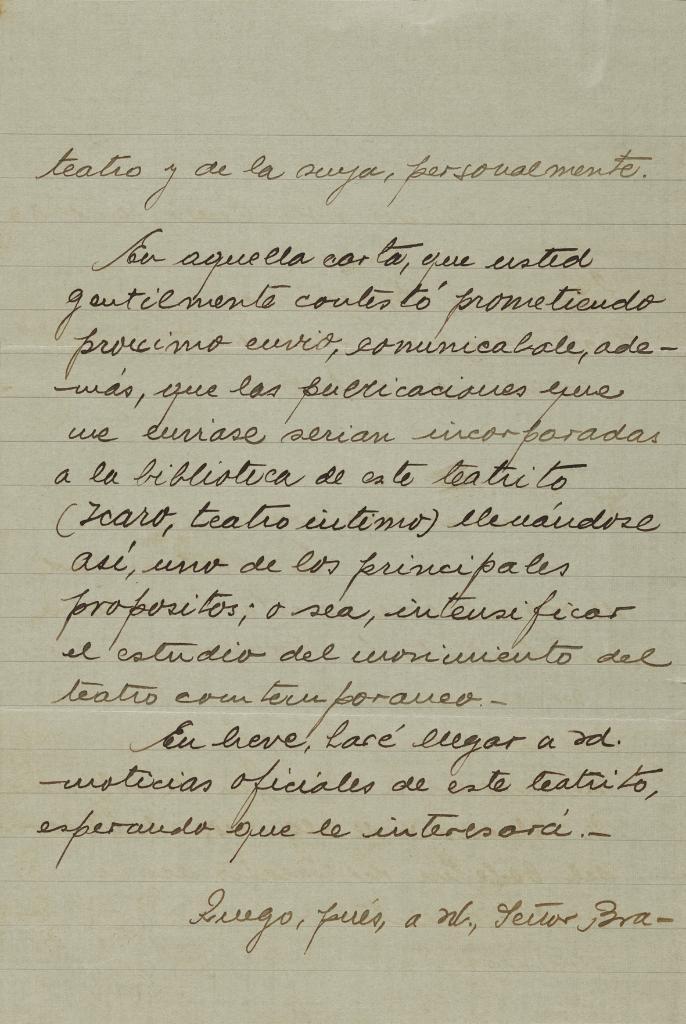 teatro y de la suya, personalmente.
En aquella carta, que usted
gentilmente contestó prometiendo
proximo envio, comunicabale, ade-
más, que las publicaciones que
me enviase serian incorporadas
a la biblioteca de este teatrito
(Icaro, teatro intimo) llevándose
así, uno de los principales
propositos; o sea, intensificar
el estudio del movimiento del
teatro comtemporaneo.-
En breve, haré llegar a Ud.
noticias oficiales de este teatrito,
esperando que le interesará.-
Ruego, pués, a Ud., Señor Bra-